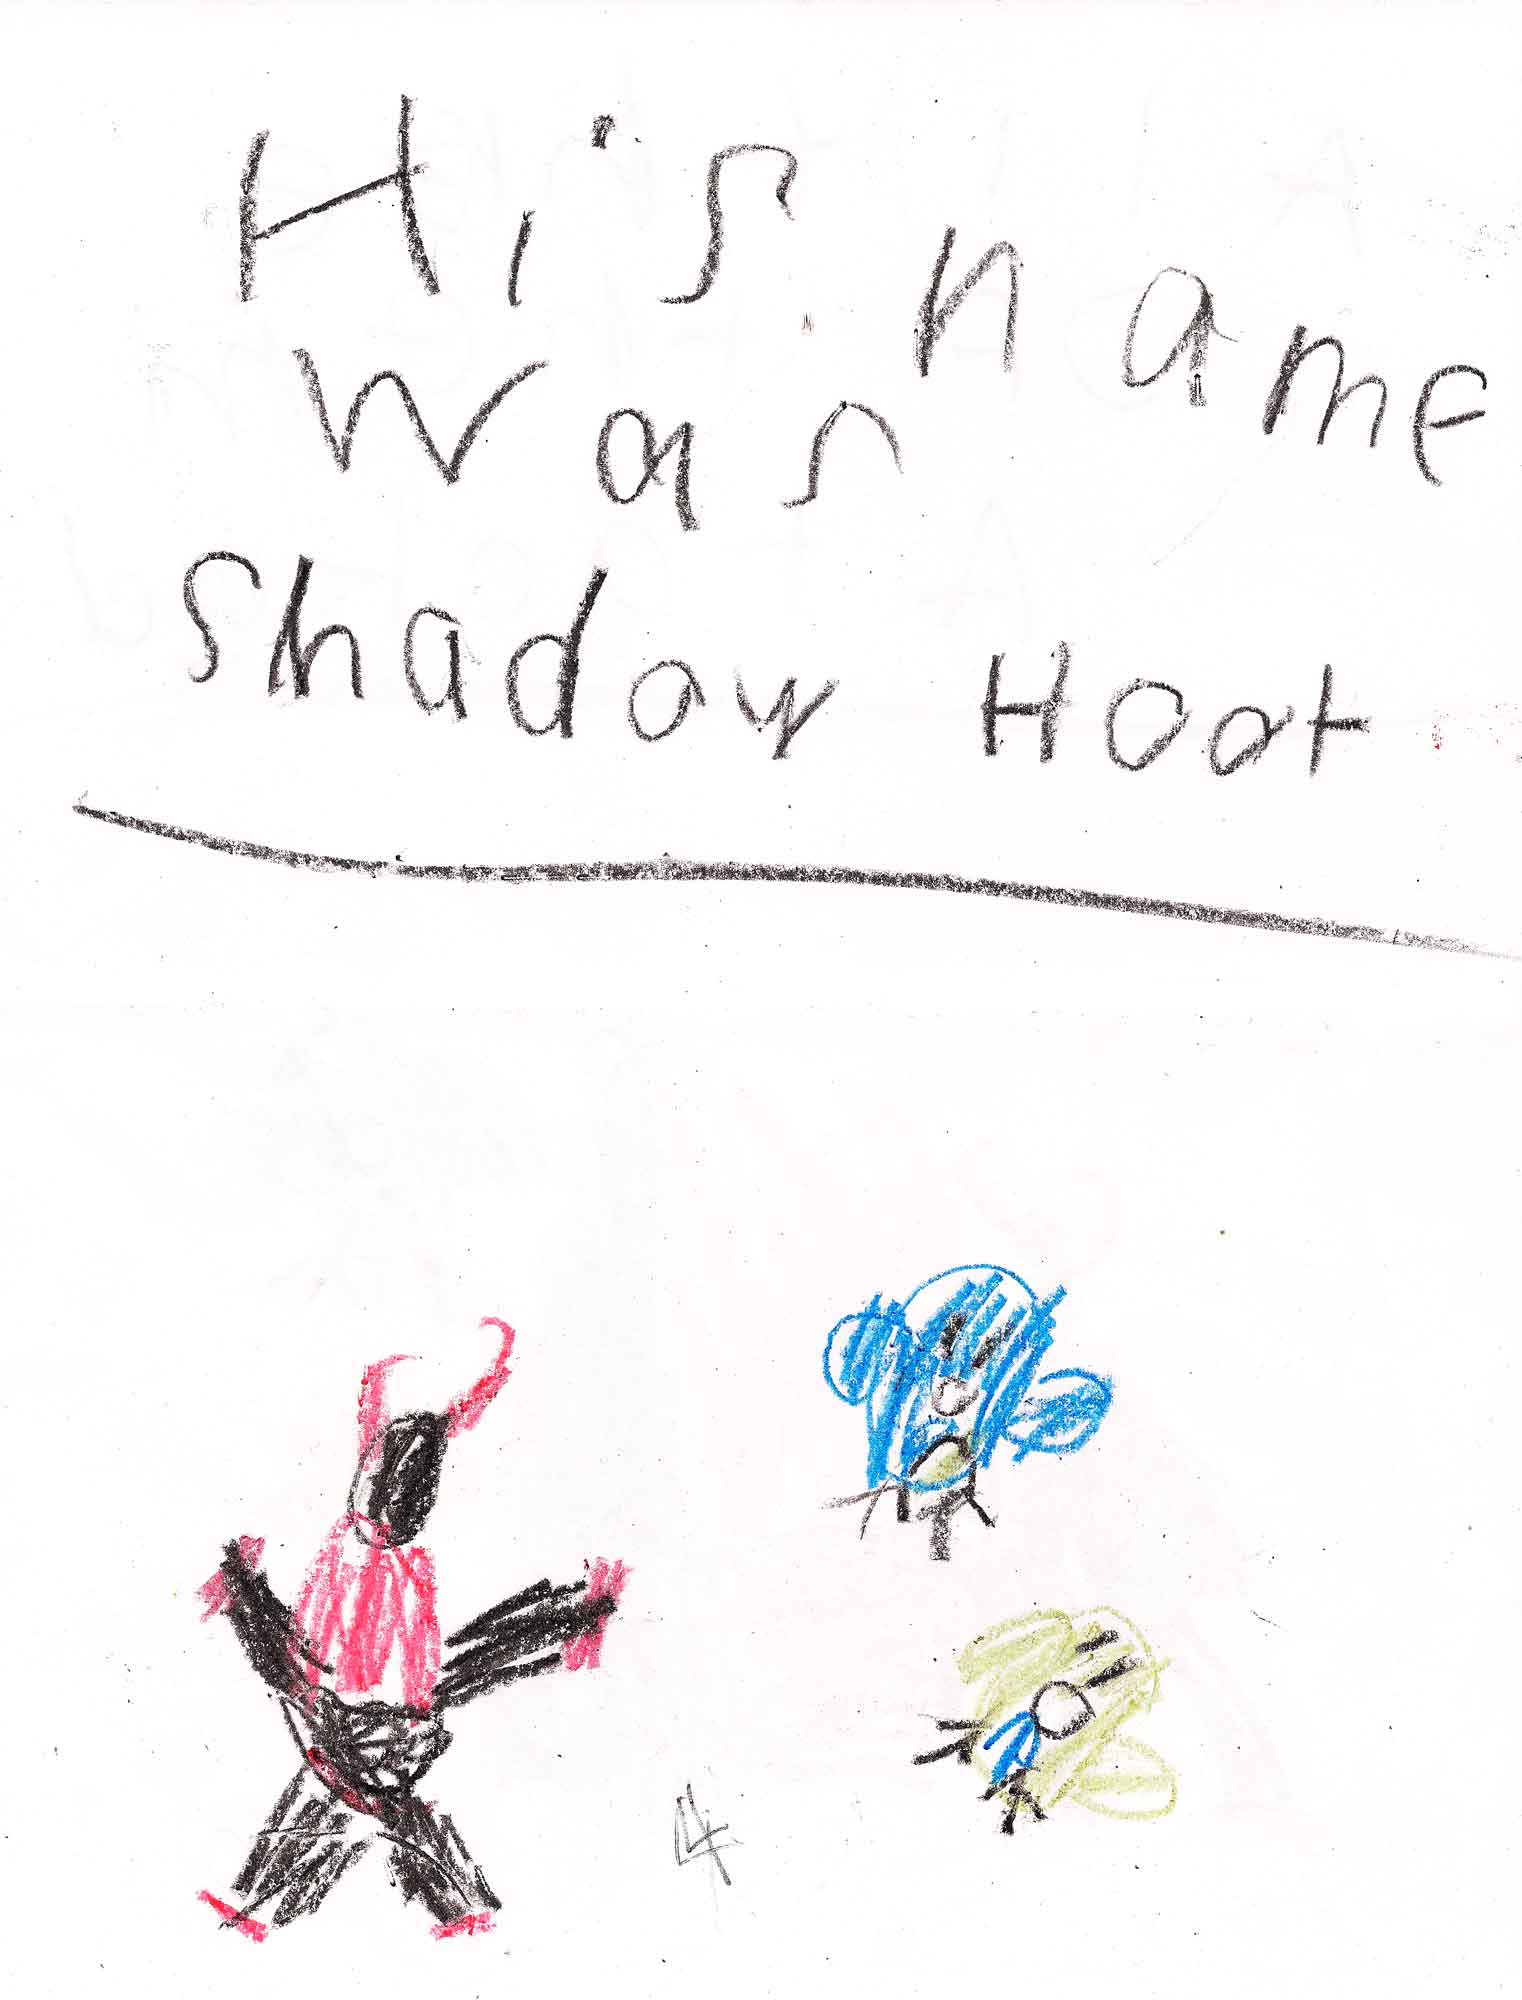 His name
was
Shadow Hoot
4